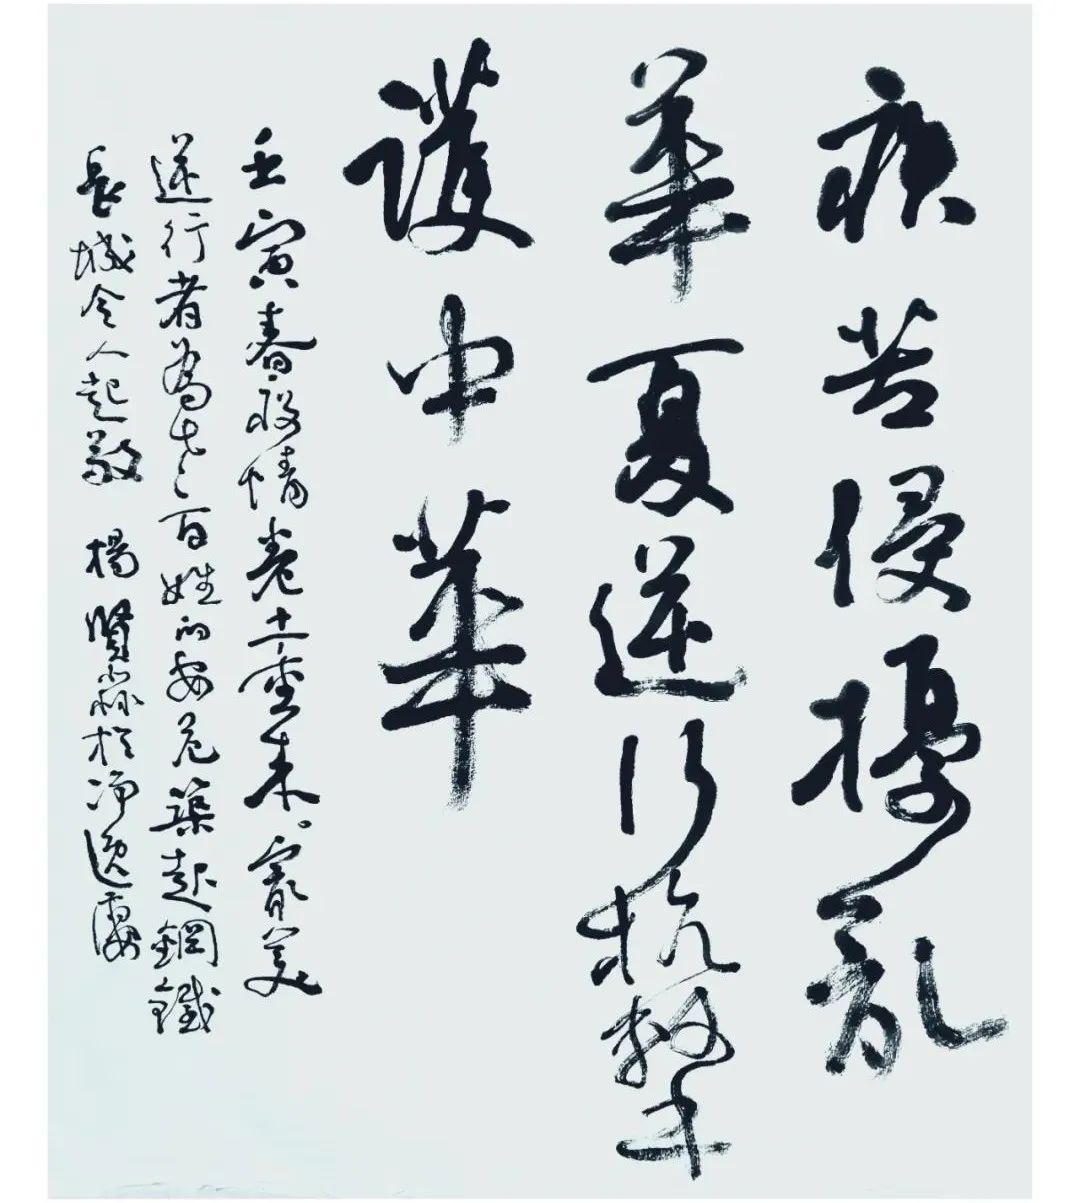 疾苦侵擾亂
華夏逆行抗擊
護中華
壬寅春疫情卷土重来。最美
逆行者為老百姓的安危築起鋼鐵
長城令人起敬 楊賢淼於净逸